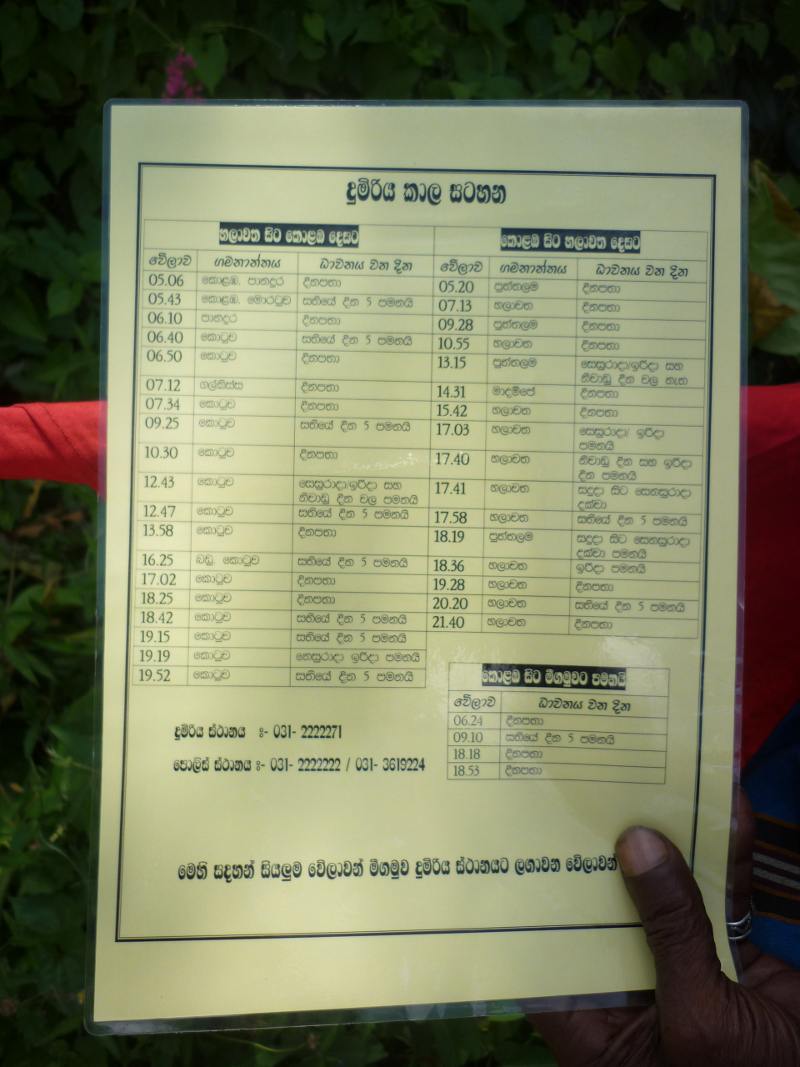 දුම්රිය කාල සටහන
හලාවත සිට කොළඹ දෙසට
වේලාව ගමනාන්තය ධාවනය වන දින
05.06 කොළඹ, පානදුර දිනපතා
05.43 කොළඹ, මොරටුව සතියේ දින 5 පමනයි
06.10 පානදුර දිනපතා
06.40 කොටුව සතියේ දින 5 පමනයි
06.50 කොටුව දිනපතා
07.12 ගල්කිස්ස දිනපතා
07.34 කොටුව දිනපතා
09.25 කොටුව සතියේ දින 5 පමනයි
10.30 කොටුව දිනපතා
12.43 කොටුව සෙසුරාදා/ඉරිදා සහ
නිවාඩු දින වල පමනයි
12.47 කොටුව සතියේ දින 5 පමනයි
13.58 කොටුව දිනපතා
16.25 බඩු, කොටුව සතියේ දින 5 පමනයි
17.02 කොටුව දිනපතා
18.25 කොටුව දිනපතා
18.42 කොටුව සතියේ දින 5 පමනයි
19.15 කොටුව සතියේ දින 5 පමනයි
19.19 කොටුව සෙසුරාදා ඉරිදා පමනයි
19.52 කොටුව සතියේ දින 5 පමනයි
කොළඹ සිට හලාවත දෙසට
වේලාව ගමනාන්තය ධාවනය වන දින
05.20 පුත්තලම දිනපතා
07.13 හලාවත දිනපතා
09.28 පුත්තලම දිනපතා
10.55 හලාවත දිනපතා
13.15 පුත්තලම සෙසුරාදා/ඉරිදා සහ
නිවාඩු දින වල නැත
14.31 මාදම්පේ දිනපතා
15.42 හලාවත දිනපතා
17.03 හලාවත සෙසුරාදා/ ඉරිදා
පමනයි
17.40 හලාවත නිවාඩු දින සහ ඉරිදා
දින පමනයි
17.41 හලාවත සදුදා සිට සෙනසුරාදා
දක්වා
17.58 හලාවත සතියේ දින 5 පමනයි
18.19 පුත්තලම සදුදා සිට සෙනසුරාදා
දක්වා පමනයි
18.36 හලාවත ඉරිදා පමනයි
19.28 හලාවත දිනපතා
20.20 හලාවත සතියේ දින 5 පමනයි
21.40 හලාවත දිනපතා
කොළඹ සිට මීගමුවට පමනයි
වේලාව ධාවනය වන දින
06.24 දිනපතා
09.10 සතියේ දින 5 පමනයි
18.18 දිනපතා
18.53 දිනපතා
දුම්රිය ස්ථානය :- 031- 2222271
පොලිස් ස්ථානය :- 031- 2222222 / 031- 3619224
මෙහි සදහන් සියලුම වේලාවන් මීගමුව දුම්රිය ස්ථානයට ලගාවන වේලාවන්